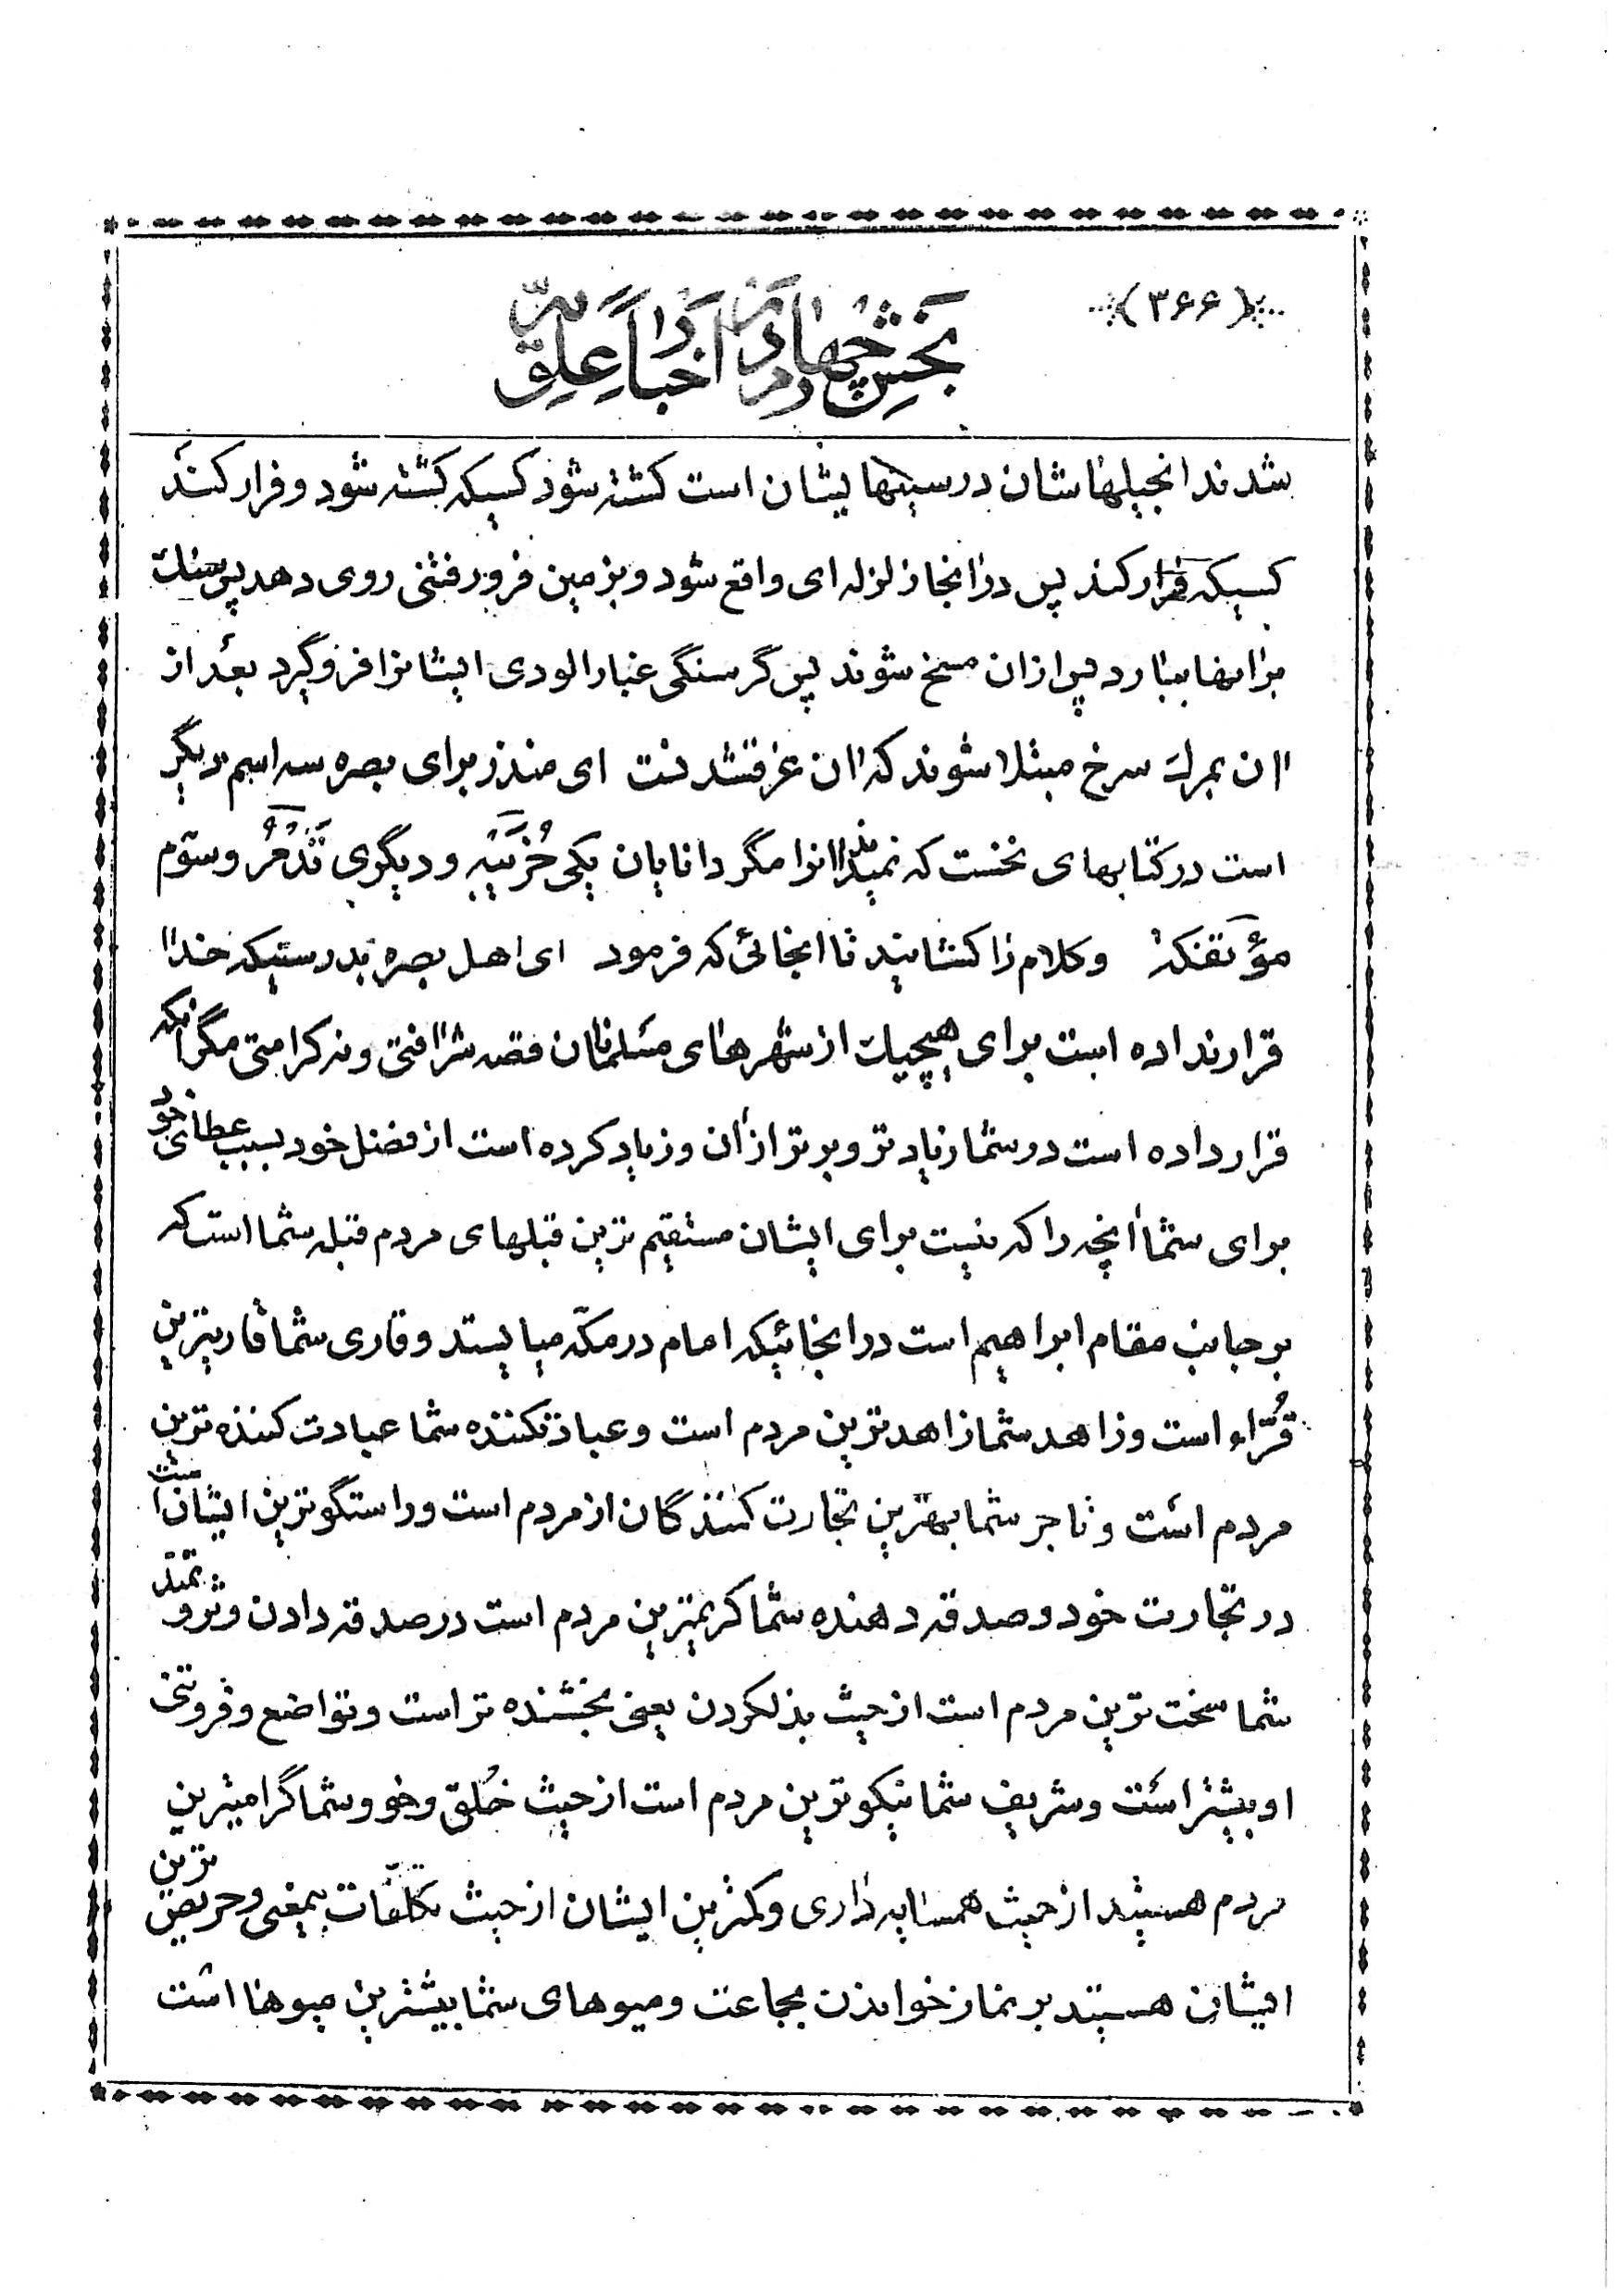 (۳۶۶)
بخش چهارم در اخبار علویّه
شدند انجیلهاشان در سینهایشان است کشته شود کسیکه کشته شود و فرار کند
کسیکه فرار کند پس در آنجا زلزله ای واقع شود و بزمین فرو رفتنی روی دهد پس سنک
بر آنها ببارد پس از آن مسخ شوند پس گرسنگی غبار آلودی ایشانرا فرو گیرد بعد از
آن بمرک سرخ مبتلا شوند که آن غرقشدنست ای منذر برای بصره سه اسم دیگر
است در کتابهای نخست که نمیداند آنرا مگر دانایان یکی خُزَیبَه و دیگری تَدْمُرُ و سوّم
مؤتفکه و کلام را کشانید تا آنجائی که فرمود ای اهل بصره بدرستیکه خدا
قرار نداده است برای هیچیک از شهرهای مسلمانان قصه شرافتی و نه کرامتی مگر آنکه
قرار داده است در شما زیادتر و برتر از آن و زیاد کرده است از فضل خود بسبب عطای خود
برای شما آنچه را که نیست برای ایشان مستقیم ترین قبلهای مردم قبله شما است که
بر جانب مقام ابراهیم است در آنجائیکه امام در مکّه میایستد و قاری شما قاریترین
قُرّاء است و زاهد شما زاهدترین مردم است و عبادتکننده شما عبادت کننده ترین
مردم است و تاجر شما بهترین تجارت کنندگان از مردم است و راستگوترین ایشان است
در تجارت خود و صدقه دهنده شما کریمترین مردم است در صدقه دادن و ثروتمند
شما سخت ترین مردم است از حیث بذلکردن یعنی بخشنده تر است و تواضع و فروتنی
او بیشتر است و شریف شما نیکوترین مردم است از حیث خُلق و خو و شما گرامیترین
مردم هستید از حیث همسایه داری و کمترین ایشان از حیث تکلّفات بیمعنی و حریص ترین
ایشان هستید بر نماز خواندن بجماعت و میوهای شما بیشترین میوها است